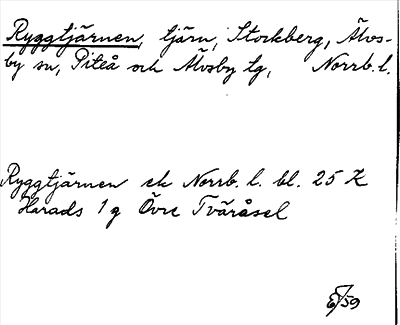 Ryggtjärnen, tjärn, Stockberg, Älvs-
by sn, Piteå och Älvsby tg, Norrb. l.
Ryggtjärnen ek Norrb. l. bl. 25 K
Harads 1 g Övre Tväråsel
/59